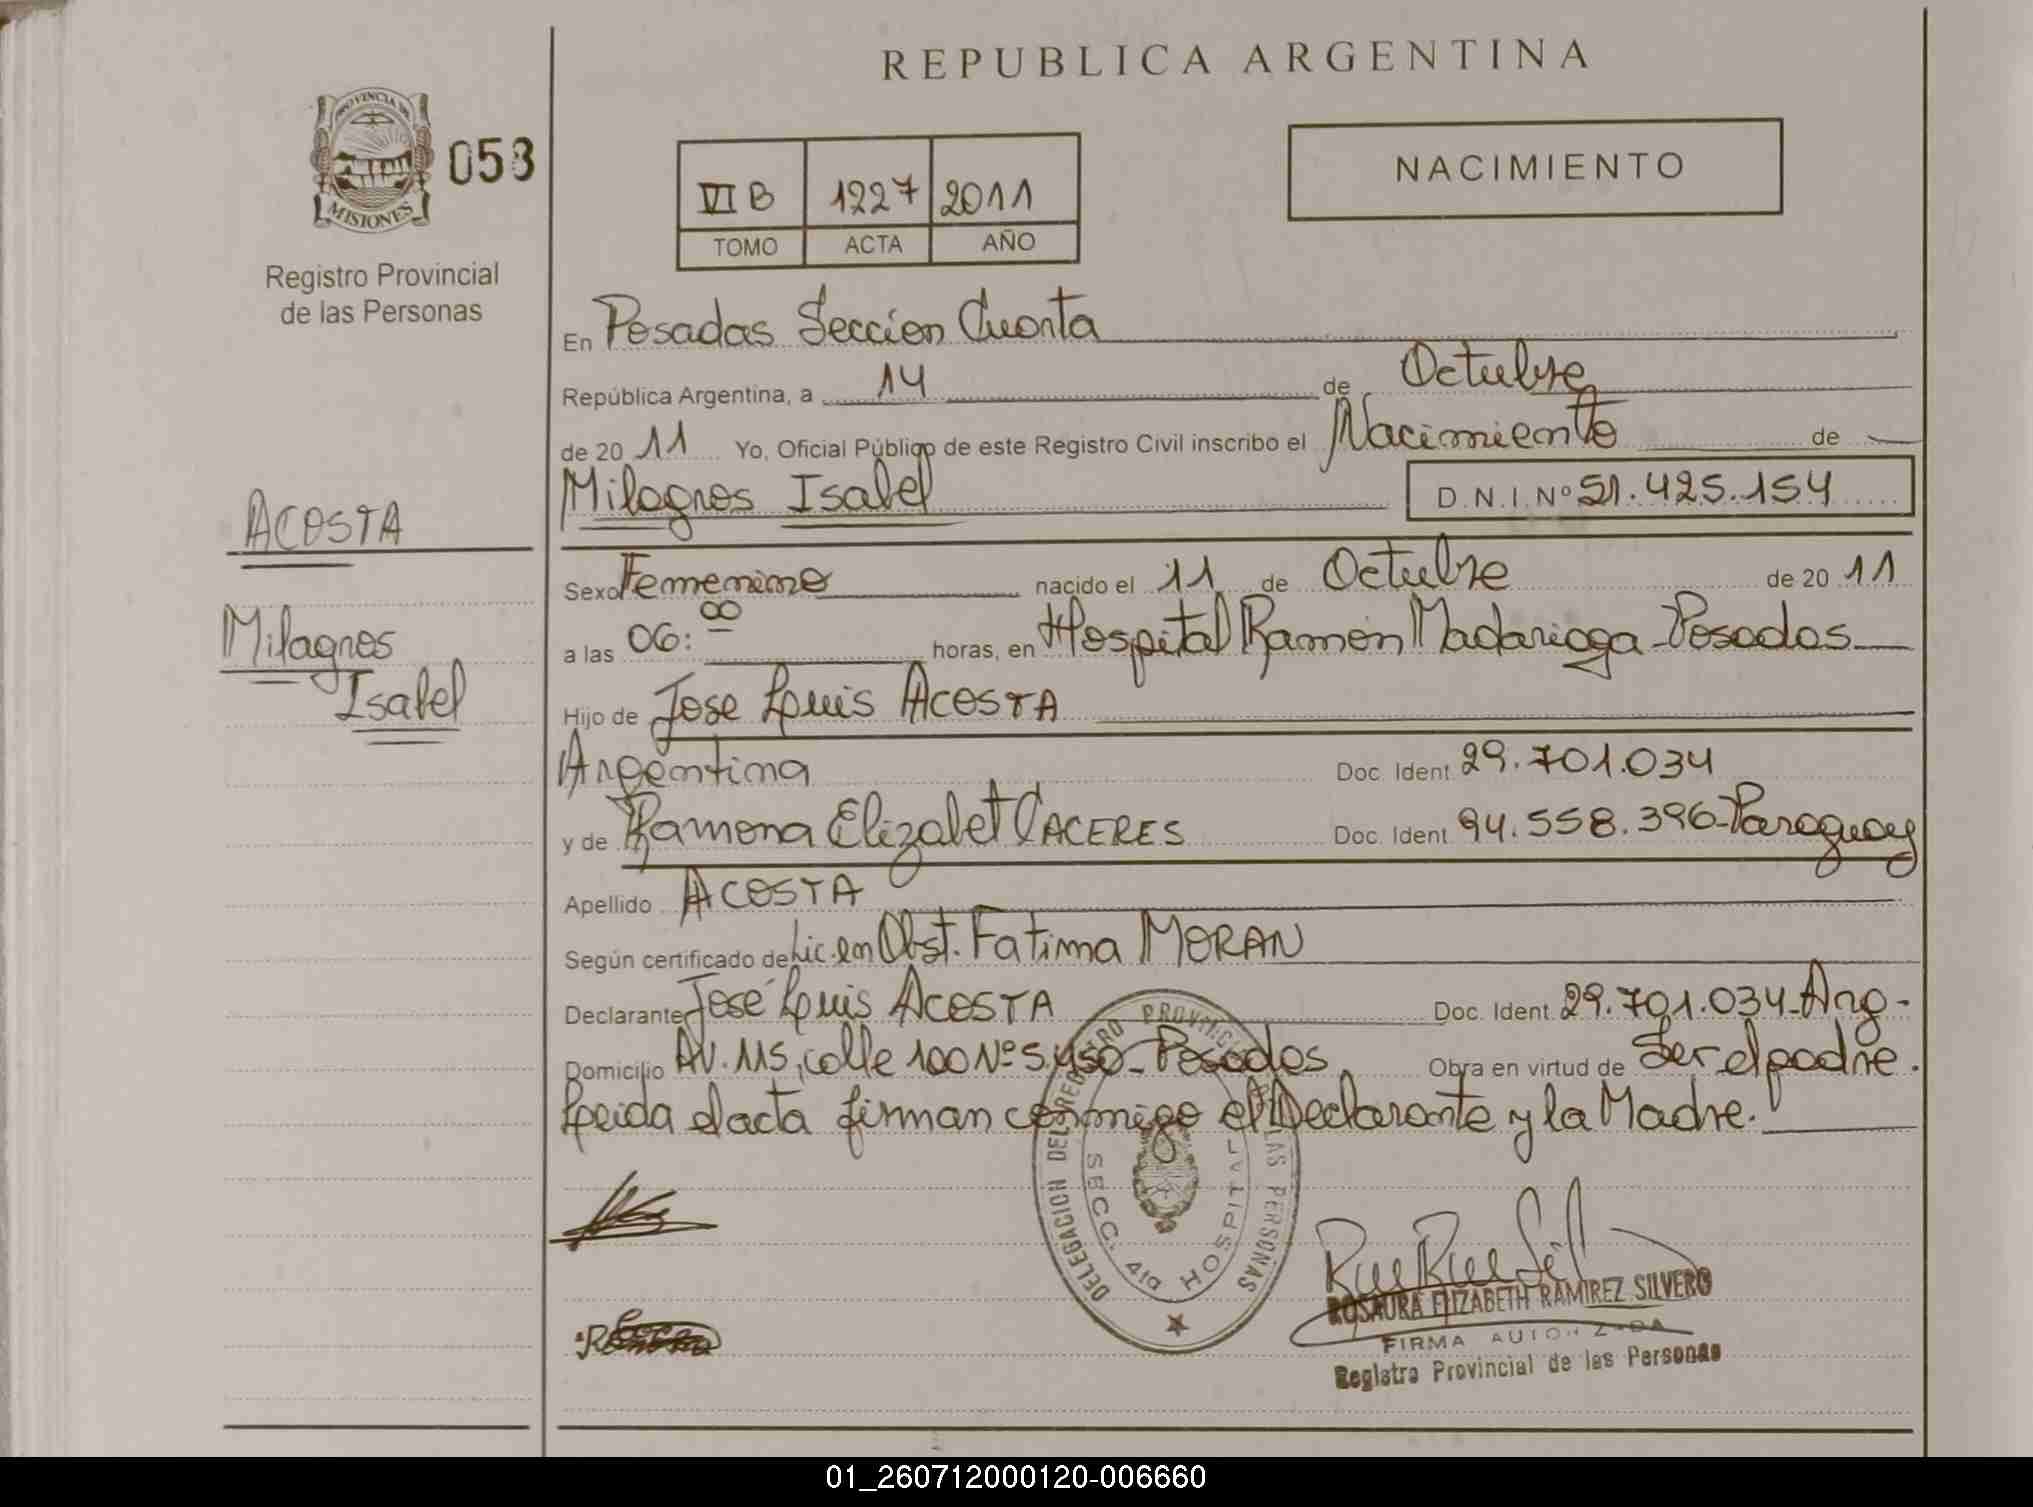 REPUBLICA ARGENTINA
PROVINCIA DE
MISIONES
053
Registro Provincial
de las Personas
NACIMIENTO
VI B 1227 2011
TOMO ACTA AÑO
En Posadas Seccion Cuarta
República Argentina, a 14 de Octubre
de 20 11 Yo, Oficial Público de este Registro Civil inscribo el Nacimiento de
Milagros Isabel D.N.I. Nº 51.425.154
ACOSTA
Milagros
Isabel
Sexo Femenino nacido el 11 de Octubre de 20 11
a las 06:00 horas, en Hospital Ramón Madariaga - Posadas
Hijo de Jose Luis ACOSTA
Argentina Doc. Ident. 29.701.034
y de Ramona Elizabet CACERES Doc. Ident. 94.558.396 - Paraguay
Apellido ACOSTA
Según certificado de Lic. en Obst. Fatima MORAN
Declarante José Luis ACOSTA Doc. Ident. 29.701.034 - Arg -
Domicilio Av. 115, calle 100 Nº 5.450 - Posadas Obra en virtud de Ser el padre.
Leida el acta firman conmigo el Declarante y la Madre.
DELEGACION DEL REGISTRO PROVINCIAL DE LAS PERSONAS
SECC. 4ta HOSPITAL
ROSAURA ELIZABETH RAMIREZ SILVERO
FIRMA AUTORIZADA
Registro Provincial de las Personas
01_260712000120-006660